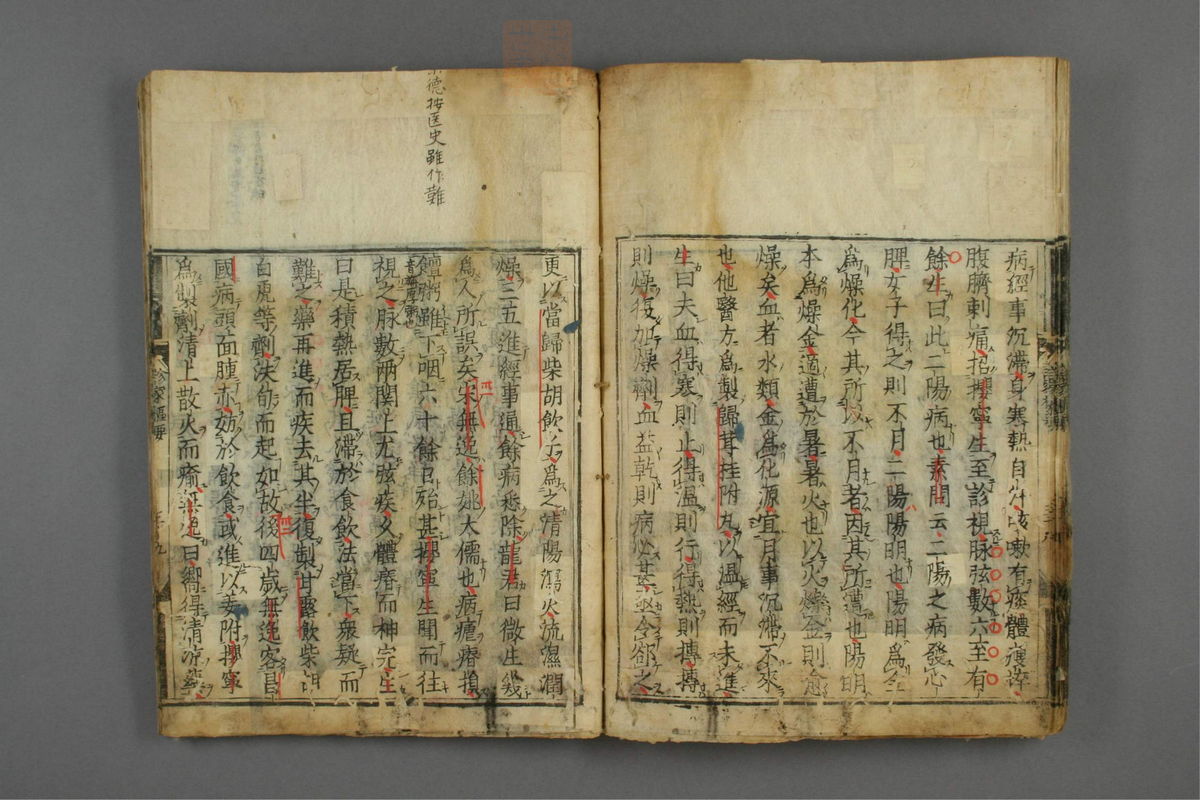 病經事沉滯身寒熱自汗咳嗽有痰體瘦瘁
腹臍刺痛招攖寧生至診視脉弦數六至有
餘生曰此二陽病也素問云二陽之病發心
脾女子得之則不月二陽陽明也陽明爲金
爲燥化今其所以不月者因其所遭也陽明
本爲燥金適遭於暑暑火也以火爍金則愈
燥矣血者水類金爲化源宜月事沉滯不來
也他醫方爲製歸茸桂附丸以温經而未進
生曰夫血得寒則止得温則行得熱則搏搏
則燥復加燥劑血益乾則病必甚亟令却之
更以當歸柴胡飲子爲之清陽瀉火流濕潤
燥三五進經事通餘病悉除龍君曰微生幾
爲人所誤矣宋無逸餘姚太儒也病瘧瘠損
饘粥難下咽六十餘日殆甚攖寧生聞而往
視之脉數兩関上尤弦疾久體瘠而神完生
曰是積熱居脾且滯於食飲法當下衆疑而
難之藥再進而疾去其半復製甘露飲柴胡
白虎等劑浹旬而起如故後四歲無逸客昌
國病頭面腫赤妨於飲食或進以姜附攖寧
爲製劑清上散火而瘉無逸曰嚮得清凉
景德按医史雖作難
診家樞要